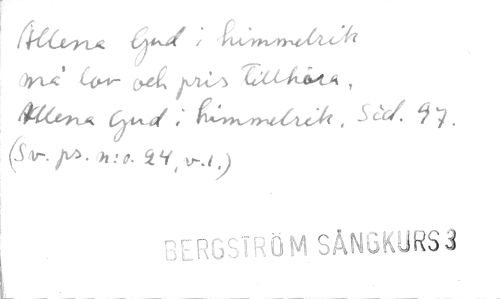 Allena Gud i himmelrik
må lov och pris tillhöra,
Allena Gud i himmelrik, Sid. 97.
(Sv. ps. n:o. 24, v.1.)
BERGSTRÖM SÅNGKURS 3